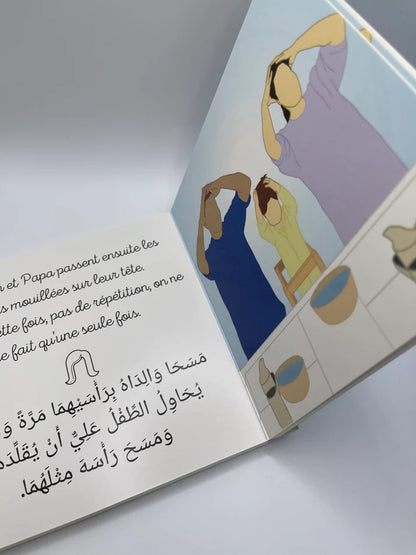 et Papa passent ensuite les
mouillées sur leur tête.
ette fois, pas de répétition, on ne
e fait qu'une seule fois.
مَسَحَا وَالِدَاهُ بِرَأْسَيْهِمَا مَرَّةً وَ
يُحَاوِلُ الطِّفْلُ عَلِيٌّ أَنْ يُقَلِّدَهُ
وَمَسَحَ رَأْسَهُ مِثْلَهُمَا.